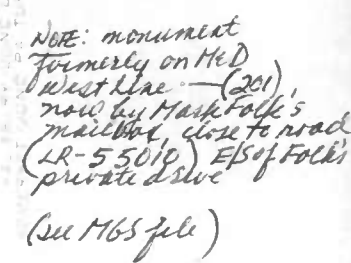 NOTE: monument
formerly on M&D
West Line — (201),
now by Mark Folk's
mailbox, close to road
(LR-55018) E/S of Folk's
private drive
(see MGS file)